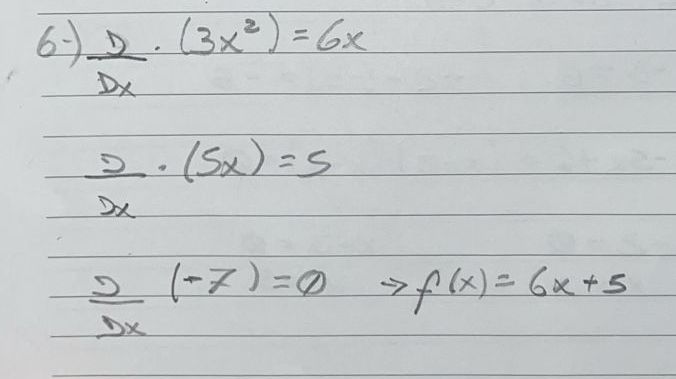 6-) D/Dx . (3x²) = 6x
D/Dx . (5x) = 5
D/Dx (-7) = 0 → f(x) = 6x+5